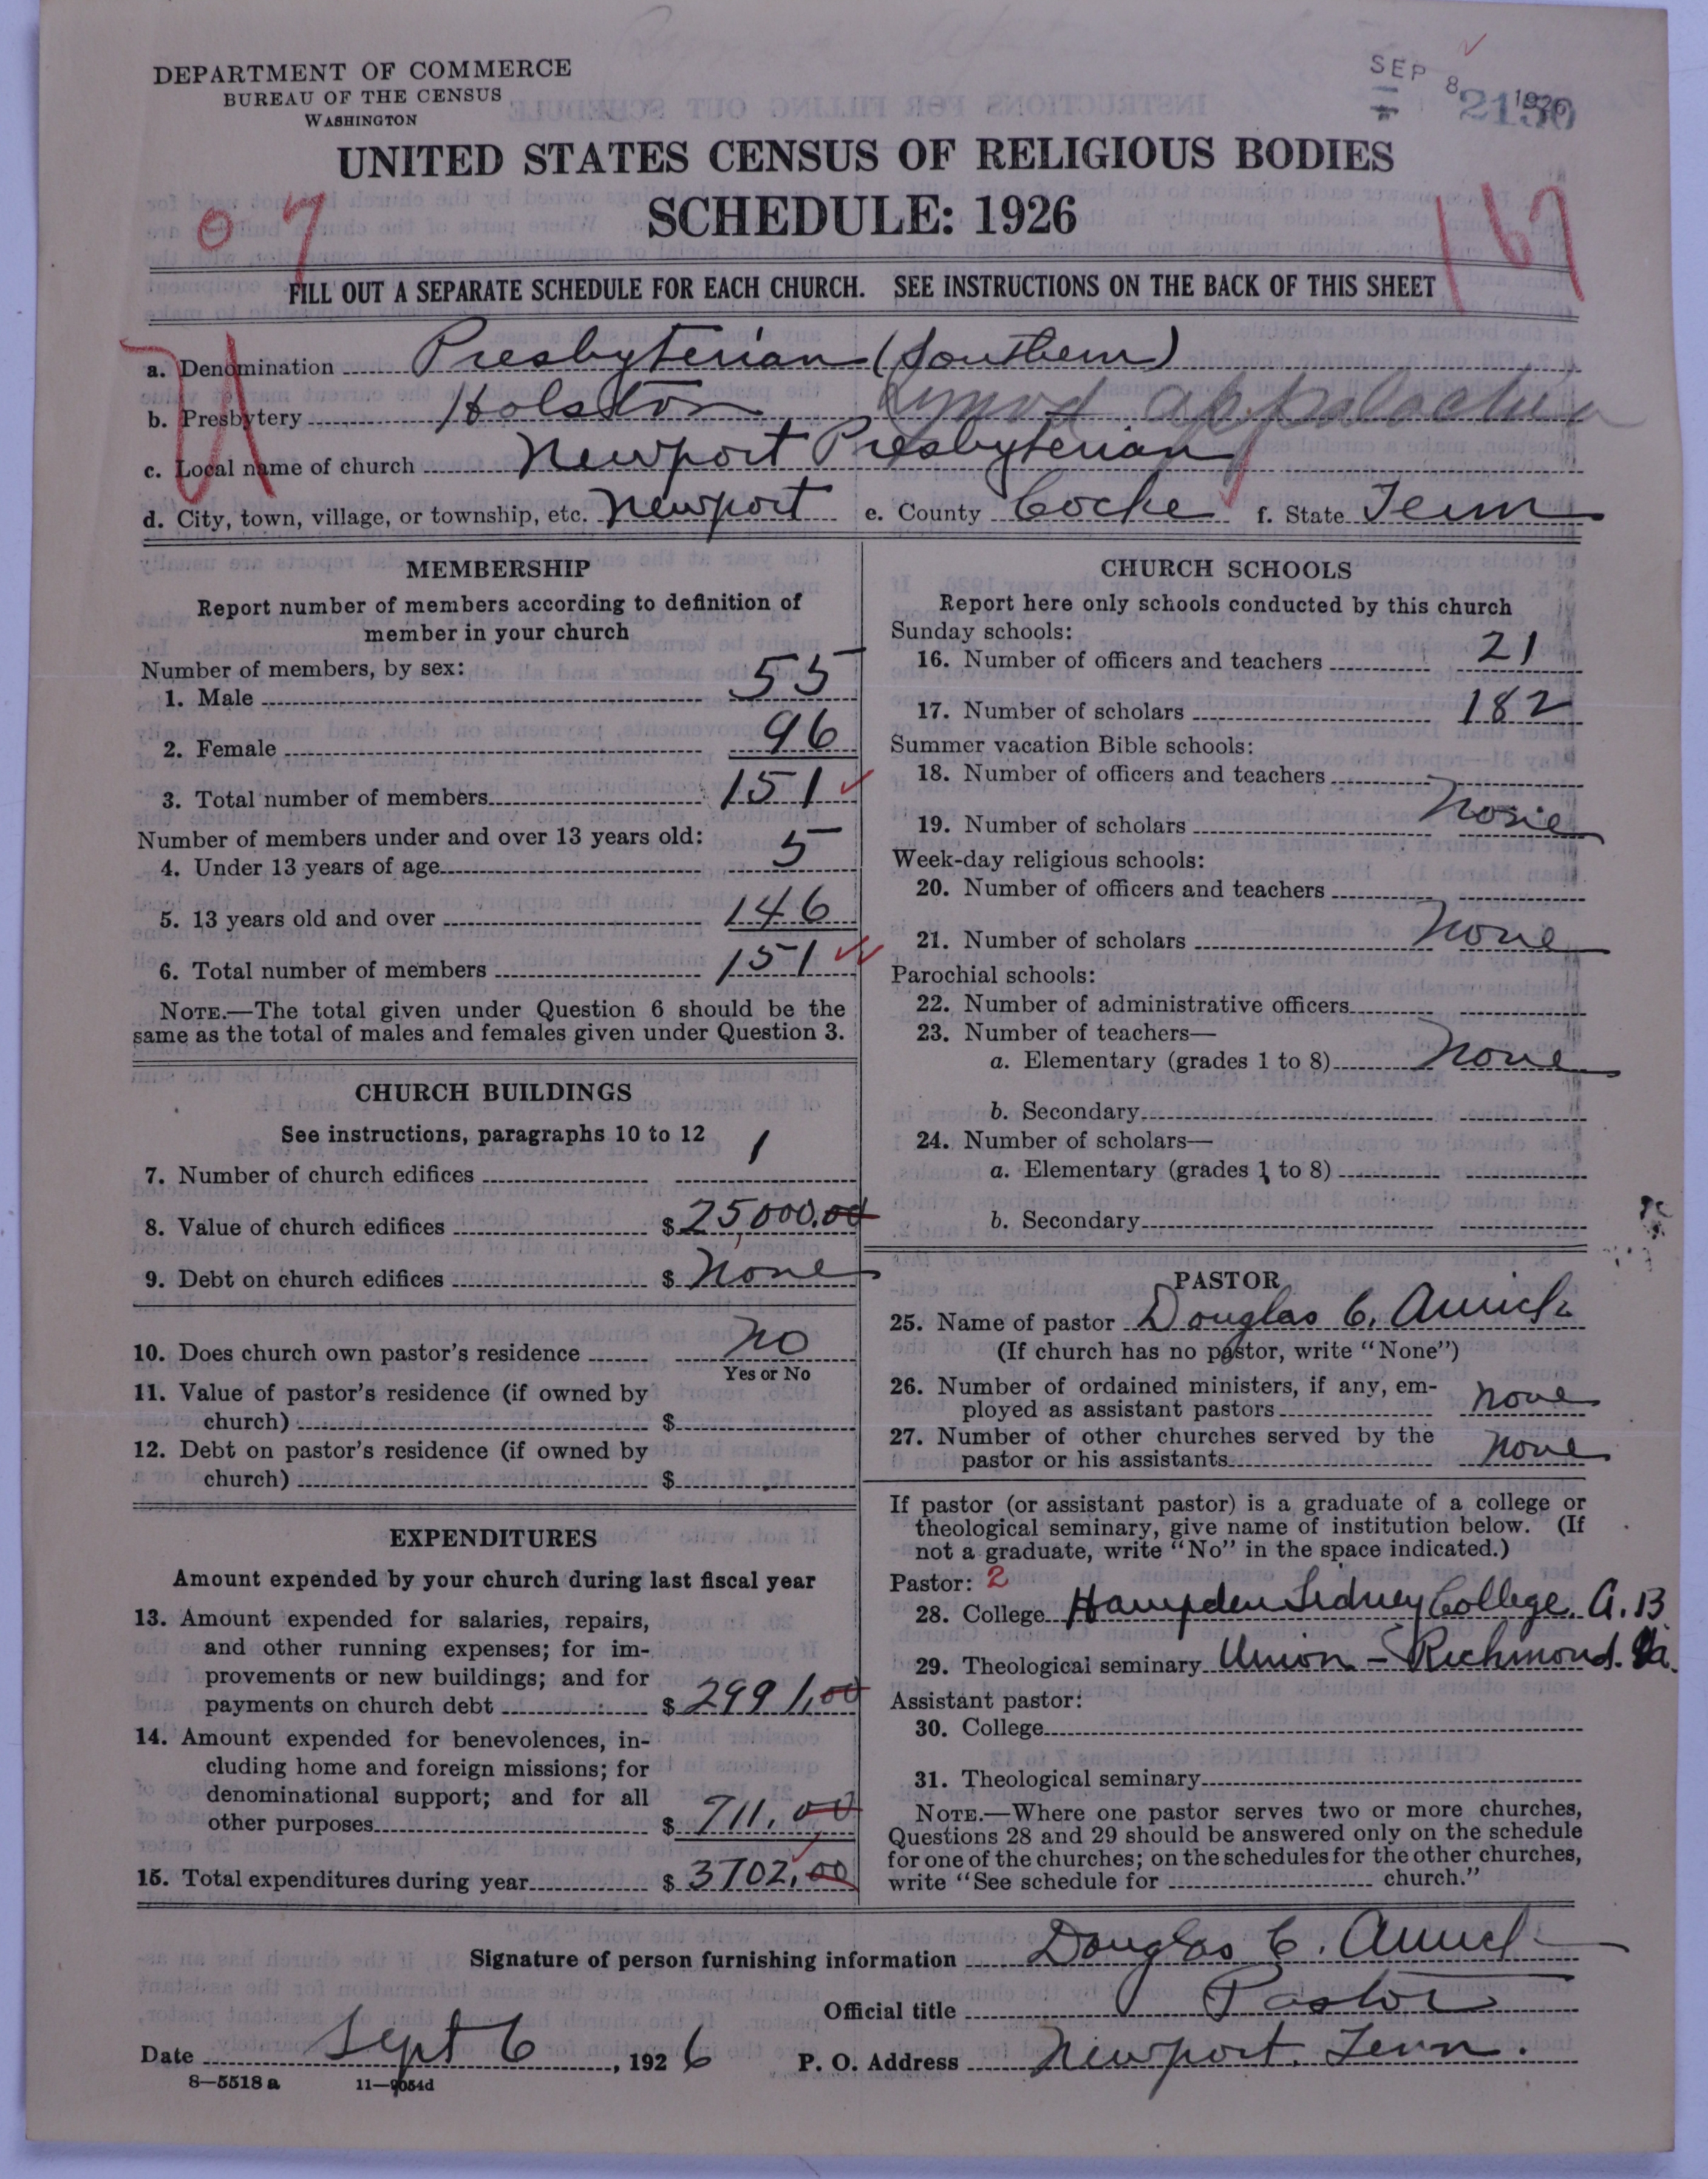 DEPARTMENT OF COMMERCE
BUREAU OF THE CENSUS
WASHINGTON
SEP 8 1926
UNITED STATES CENSUS OF RELIGIOUS BODIES
SCHEDULE: 1926
07
167
FILL OUT A SEPARATE SCHEDULE FOR EACH CHURCH. SEE INSTRUCTIONS ON THE BACK OF THIS SHEET
U
a. Denomination Presbyterian (Southern)
b. Presbytery Holston Synod Appalachia
c. Local name of church Newport Presbyterian
d. City, town, village, or township, etc. Newport e. County Cocke f. State Tenn
MEMBERSHIP
Report number of members according to definition of
member in your church
Number of members, by sex:
1. Male 55
2. Female 96
3. Total number of members 151
Number of members under and over 13 years old:
4. Under 13 years of age 5
5. 13 years old and over 146
6. Total number of members 151
NOTE.—The total given under Question 6 should be the
same as the total of males and females given under Question 3.
CHURCH BUILDINGS
See instructions, paragraphs 10 to 12
7. Number of church edifices 1
8. Value of church edifices $ 25000.00
9. Debt on church edifices $ None
10. Does church own pastor's residence no
Yes or No
11. Value of pastor's residence (if owned by
church) $
12. Debt on pastor's residence (if owned by
church) $
EXPENDITURES
Amount expended by your church during last fiscal year
13. Amount expended for salaries, repairs,
and other running expenses; for im-
provements or new buildings; and for
payments on church debt $ 2991.00
14. Amount expended for benevolences, in-
cluding home and foreign missions; for
denominational support; and for all
other purposes $ 711.00
15. Total expenditures during year $ 3702.00
CHURCH SCHOOLS
Report here only schools conducted by this church
Sunday schools:
16. Number of officers and teachers 21
17. Number of scholars 182
Summer vacation Bible schools:
18. Number of officers and teachers
19. Number of scholars None
Week-day religious schools:
20. Number of officers and teachers
21. Number of scholars None
Parochial schools:
22. Number of administrative officers
23. Number of teachers—
a. Elementary (grades 1 to 8) None
b. Secondary
24. Number of scholars—
a. Elementary (grades 1 to 8)
b. Secondary
PASTOR
25. Name of pastor Douglas C.
(If church has no pastor, write "None")
26. Number of ordained ministers, if any, em-
ployed as assistant pastors none
27. Number of other churches served by the
pastor or his assistants none
If pastor (or assistant pastor) is a graduate of a college or
theological seminary, give name of institution below. (If
not a graduate, write "No" in the space indicated.)
Pastor: 2
28. College Hampden Sidney College. A.B
29. Theological seminary Union - Richmond. Va.
Assistant pastor:
30. College
31. Theological seminary
NOTE.—Where one pastor serves two or more churches,
Questions 28 and 29 should be answered only on the schedule
for one of the churches; on the schedules for the other churches,
write "See schedule for church."
Signature of person furnishing information Douglas C.
Official title Pastor
Date Sept 6, 1926 P. O. Address Newport. Tenn.
8—5518 a 11—9054d